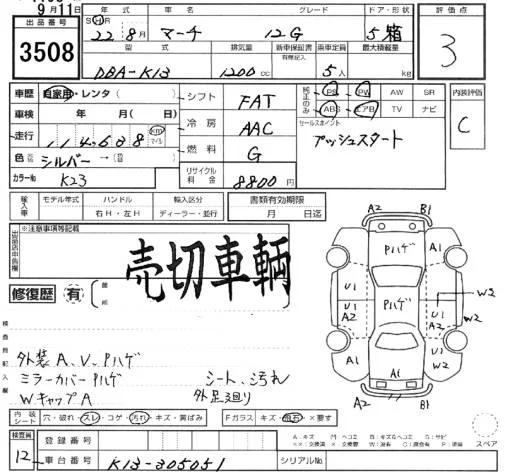 9月11日
出品番号
3508
年式 車名 グレード ドア・形状
22 8月 マーチ 12G 5 箱
評価点
3
型式 排気量 新車保証書 乗車定員 最大積載量
有無記入
DBA-K13 1200 cc 5人 kg
車歴 自家用・レンタ( )
車検 年 月( )
走行 114,638 km マイル
色 シルバー→( )
カラーNo K23
シフト FAT
冷房 AAC
燃料 G
リサイクル料金 8800円
純正のみ PS PW AW SR
ABS エアB TV ナビ
内装評価
C
セールスポイント
プッシュスタート
輸入車 モデル年式 ハンドル 輸入区分
右H・左H ディーラー・並行
書類有効期限
月 日迄
出品店申告欄
※注意事項等記載
売切車輌
修復歴 有 箇所
検査員記入欄
外装 A、V、Pハゲ
ミラーカバーPハゲ
WキャップA
シート、汚れ
外足廻り
内装シート 穴・破れ・スレ・コゲ・汚れ・キズ・黄ばみ
Fガラス キズ・飛石・×要す
検査員
12
登録番号
車台番号 K13-305051
シリアルNo
A2 B1
A1 Pハゲ A1
U1 U1 W2
A2 Pハゲ U1 A2 W2
U1 W2
A1 U1
A2 B1
スペア